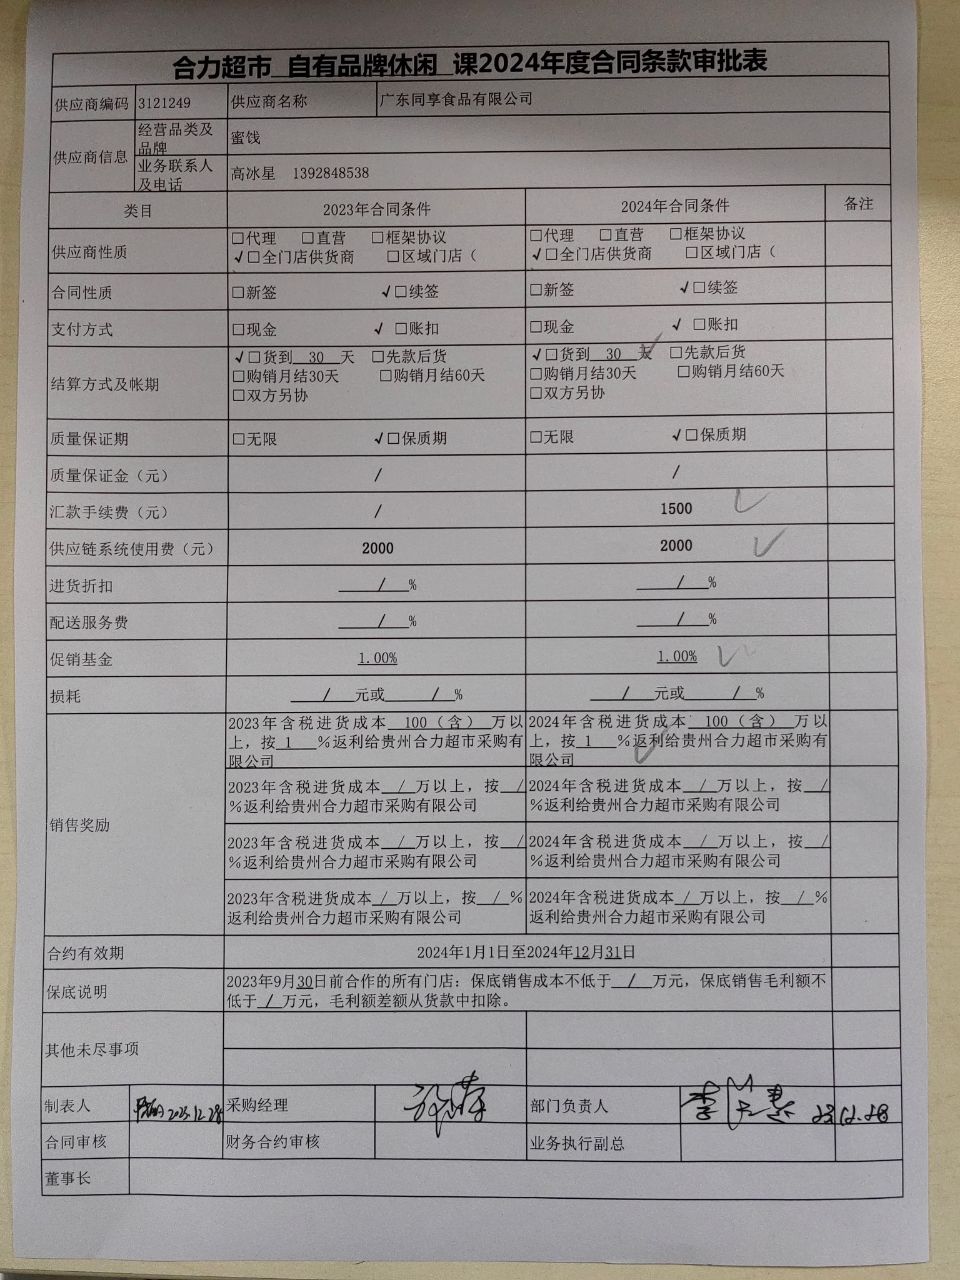 合力超市 自有品牌休闲 课2024年度合同条款审批表
供应商编码 3121249 供应商名称 广东同享食品有限公司
供应商信息 经营品类及品牌 蜜饯
业务联系人及电话 高冰星 1392848538
类目 2023年合同条件 2024年合同条件 备注
供应商性质 □代理 □直营 □框架协议 □代理 □直营 □框架协议
√□全门店供货商 □区域门店（ √□全门店供货商 □区域门店（
合同性质 □新签 √□续签 □新签 √□续签
支付方式 □现金 √ □账扣 □现金 √ □账扣
结算方式及帐期 √□货到 30 天 □先款后货 √□货到 30 天 □先款后货
□购销月结30天 □购销月结60天 □购销月结30天 □购销月结60天
□双方另协 □双方另协
质量保证期 □无限 √□保质期 □无限 √□保质期
质量保证金（元） / /
汇款手续费（元） / 1500
供应链系统使用费（元） 2000 2000
进货折扣 / % / %
配送服务费 / % / %
促销基金 1.00% 1.00%
损耗 / 元或 / % / 元或 / %
销售奖励
2023年含税进货成本 100（含） 万以
上，按 1 %返利给贵州合力超市采购有
限公司
2024年含税进货成本 100（含） 万以
上，按 1 %返利给贵州合力超市采购有
限公司
2023年含税进货成本 / 万以上，按 /
%返利给贵州合力超市采购有限公司
2024年含税进货成本 / 万以上，按 /
%返利给贵州合力超市采购有限公司
2023年含税进货成本 / 万以上，按 /
%返利给贵州合力超市采购有限公司
2024年含税进货成本 / 万以上，按 /
%返利给贵州合力超市采购有限公司
2023年含税进货成本 / 万以上，按 / %
返利给贵州合力超市采购有限公司
2024年含税进货成本 / 万以上，按 / %
返利给贵州合力超市采购有限公司
合约有效期 2024年1月1日至2024年12月31日
保底说明 2023年9月30日前合作的所有门店：保底销售成本不低于 / 万元，保底销售毛利额不
低于 / 万元，毛利额差额从货款中扣除。
其他未尽事项
制表人 2023.12.28 采购经理 部门负责人 23.12.28
合同审核 财务合约审核 业务执行副总
董事长